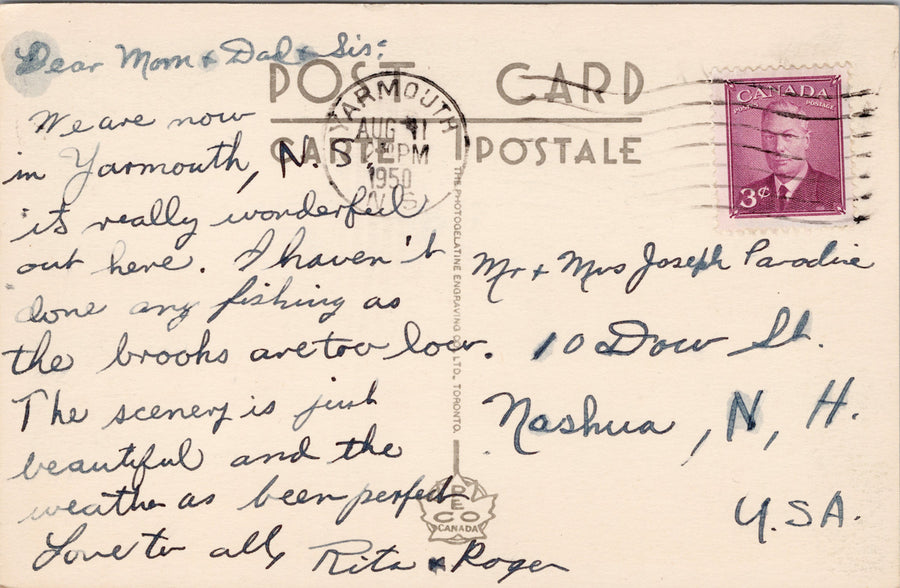 Dear Mom + Dad + Sis:
POST CARD
CARTE POSTALE
YARMOUTH
AUG 11
PM
1950
N.S.
CANADA
POSTES POSTAGE
3¢
We are now
in Yarmouth, N.S.
it's really wonderful
out here. I haven't
done any fishing as
the brooks are too low.
The scenery is just
beautiful and the
weather as been perfect
Love to all,
Rita & Roger
THE PHOTOGELATINE ENGRAVING CO. LTD., TORONTO.
PECO
CANADA
Mr + Mrs Joseph Paradise
10 Dow St.
Nashua, N, H.
U.SA.